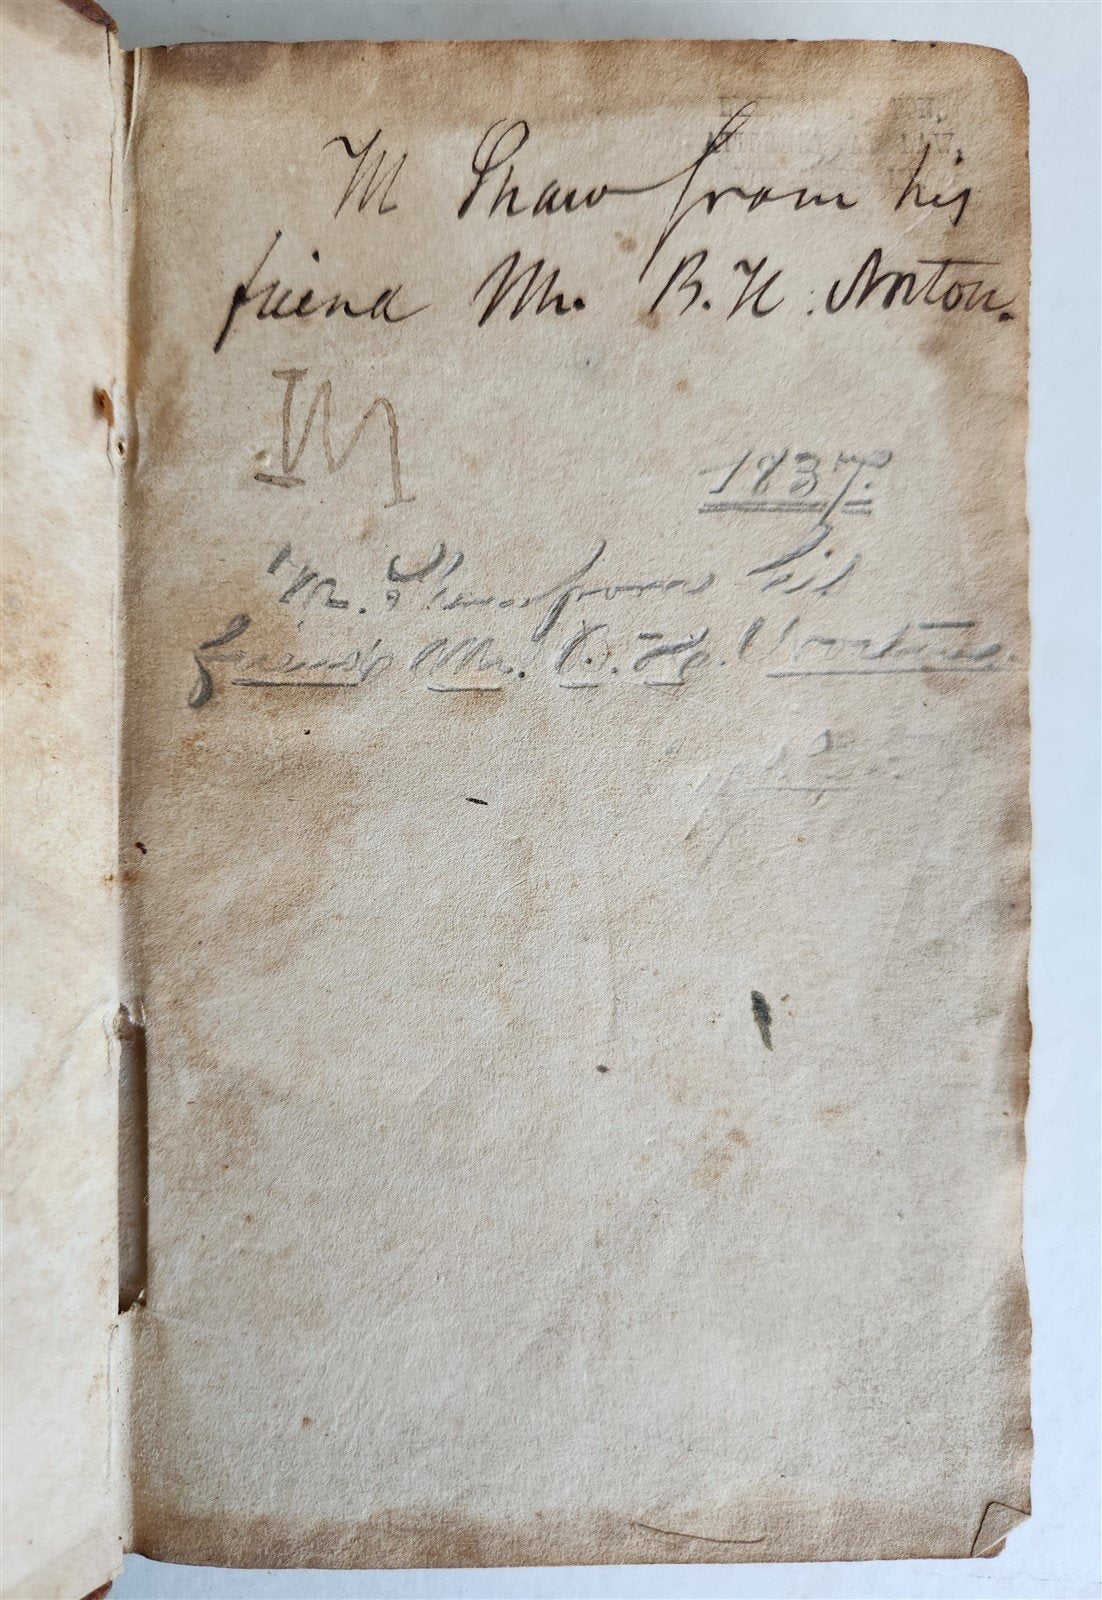 M Shaw from his
friend Mr. B. H. Norton.
M
1837.
Mr. Shaw from his
friend Mr. B. H. Norton.